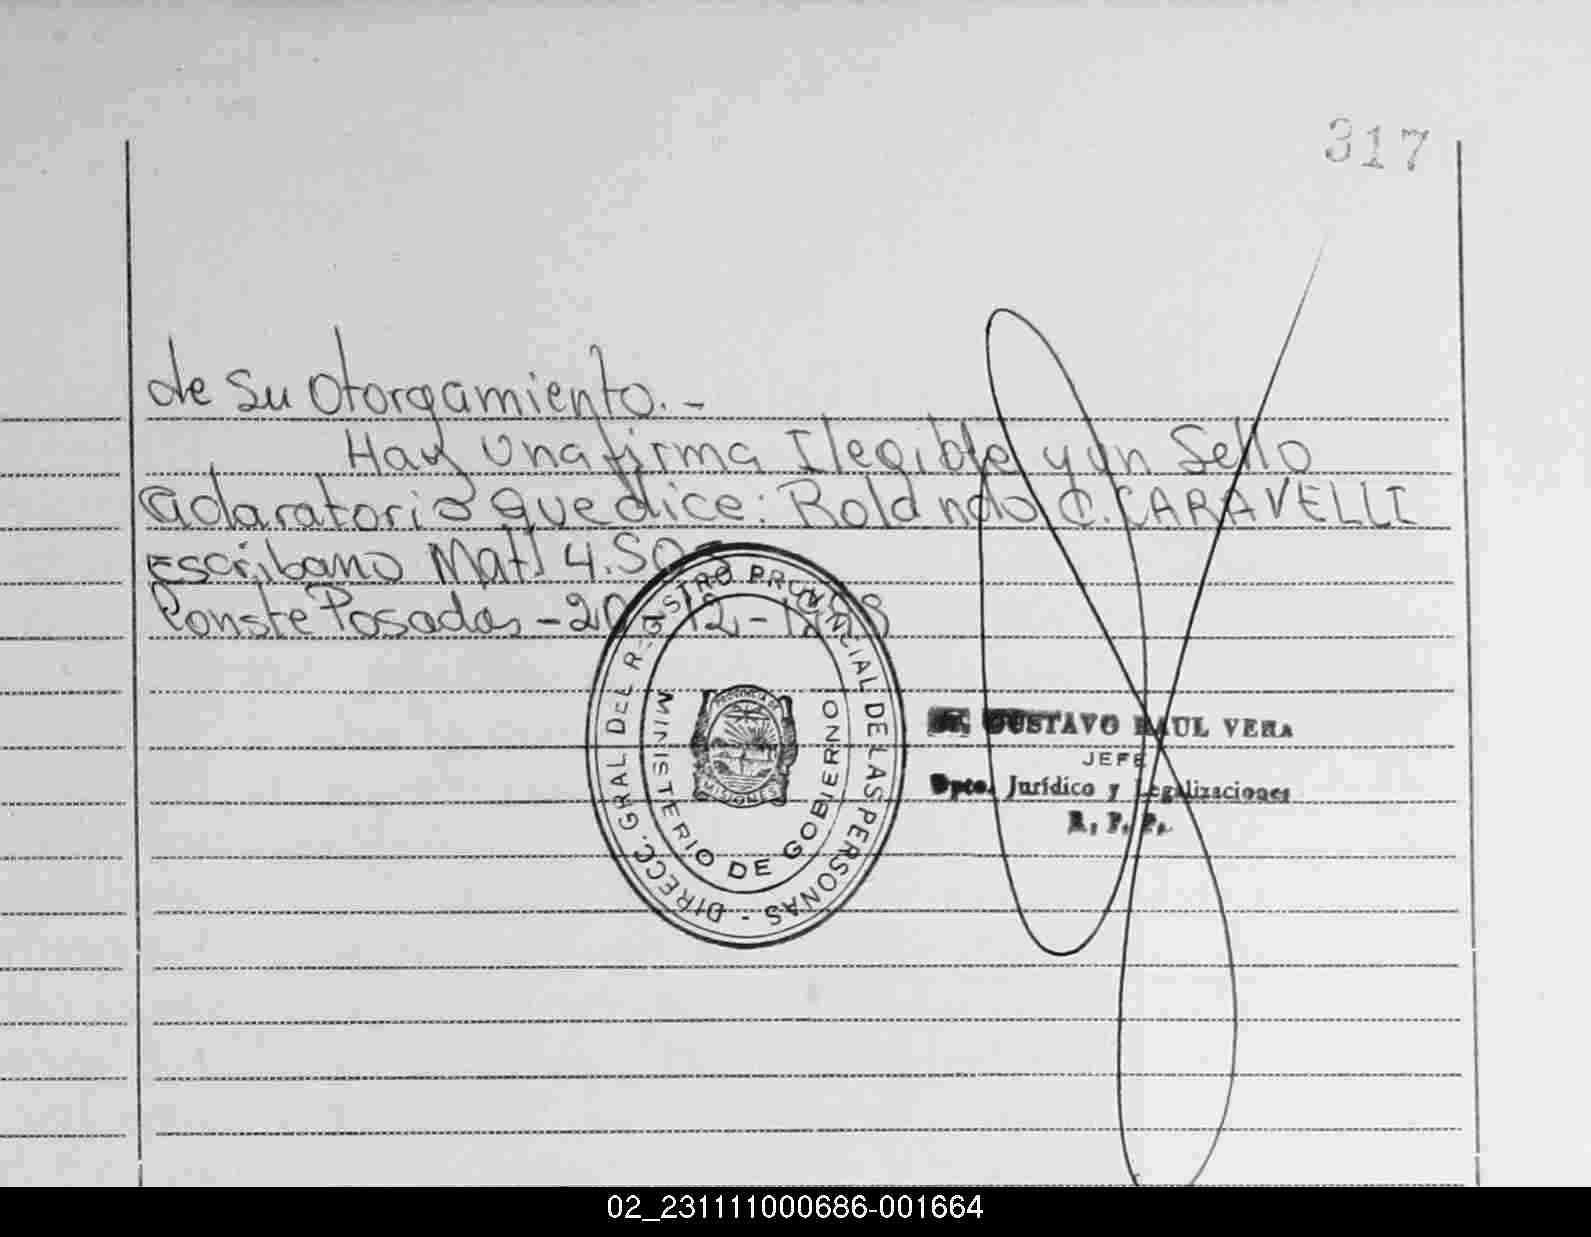 317
de su Otorgamiento.-
Hay Una firma Ilegible y un Sello
aclaratorio que dice: Rolando C. CARAVELLI
Escribano Mat
Conste Posadas -20-12-
DIRECC. GRAL DEL REGISTRO PROVINCIAL DE LAS PERSONAS -
MINISTERIO DE GOBIERNO
PROVINCIA DE
MISIONES
GUSTAVO RAUL VERA
JEFE
Dpto. Jurídico y Legalizaciones
R. P. P.
02_231111000686-001664